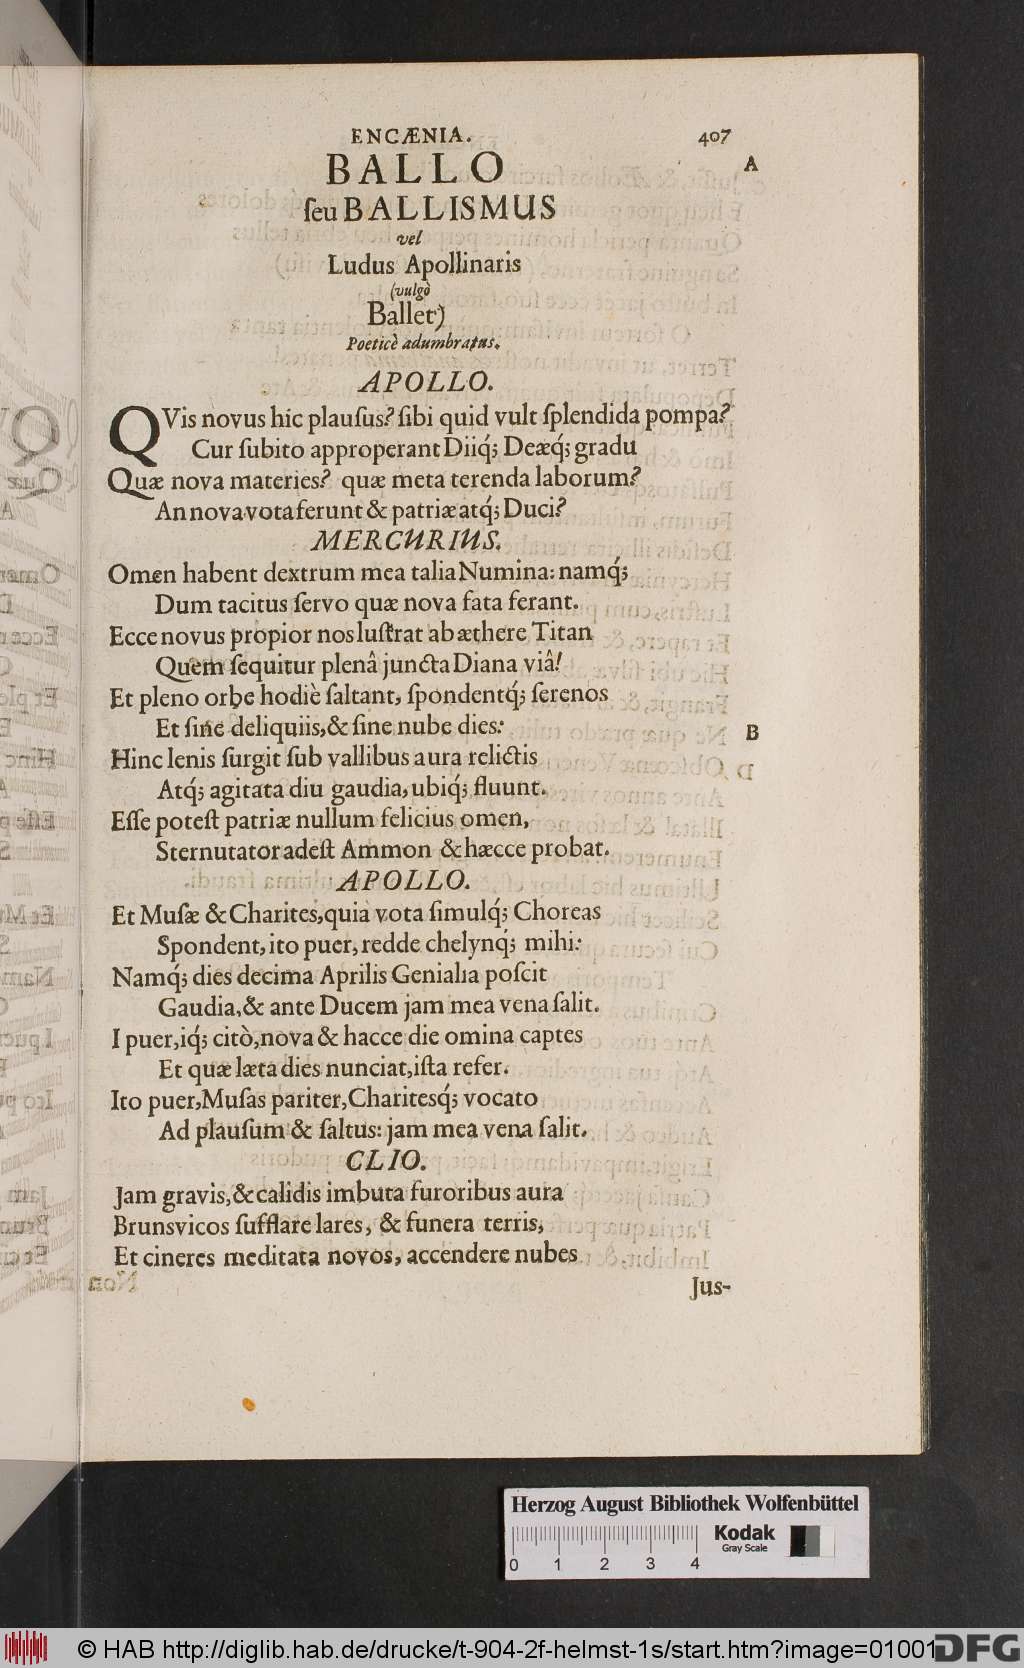 ENCÆNIA. 407
BALLO A
ſeu BALLISMUS
vel
Ludus Apollinaris
(vulgò
Ballet)
Poeticè adumbratus.
APOLLO.
QVis novus hîc plauſus? ſibi quid vult ſplendida pompa?
Cur ſubito approperant Diiq́; Deæq́; gradu
Quæ nova materies? quæ meta terenda laborum?
An nova vota ferunt & patriæ atq́; Duci?
MERCURIUS.
Omen habent dextrum mea talia Numina: namq́;
Dum tacitus ſervo quæ nova fata ferant.
Ecce novus propior nos luſtrat ab æthere Titan
Quem ſequitur plenâ juncta Diana viâ!
Et pleno orbe hodiè ſaltant, ſpondentq́; ſerenos
Et ſine deliquiis, & ſine nube dies:
B
Hinc lenis ſurgit ſub vallibus aura relictis
Atq́; agitata diu gaudia, ubiq́; fluunt.
Eſſe poteſt patriæ nullum felicius omen,
Sternutator adeſt Ammon & hæcce probat.
APOLLO.
Et Muſæ & Charites, quia vota ſimulq́; Choreas
Spondent, ito puer, redde chelynq́; mihi:
Namq́; dies decima Aprilis Genialia poſcit
Gaudia, & ante Ducem jam mea vena ſalit.
I puer, iq́; citò, nova & hacce die omina captes
Et quæ læta dies nunciat, iſta refer.
Ito puer, Muſas pariter, Charitesq́; vocato
Ad plauſum & ſaltus: jam mea vena ſalit.
CLIO.
Jam gravis, & calidis imbuta furoribus aura
Brunsvicos ſufflare lares, & funera terris,
Et cineres meditata novos, accendere nubes
Jus-
Herzog August Bibliothek Wolfenbüttel
Kodak
Gray Scale
0 1 2 3 4
© HAB http://diglib.hab.de/drucke/t-904-2f-helmst-1s/start.htm?image=01001
DFG